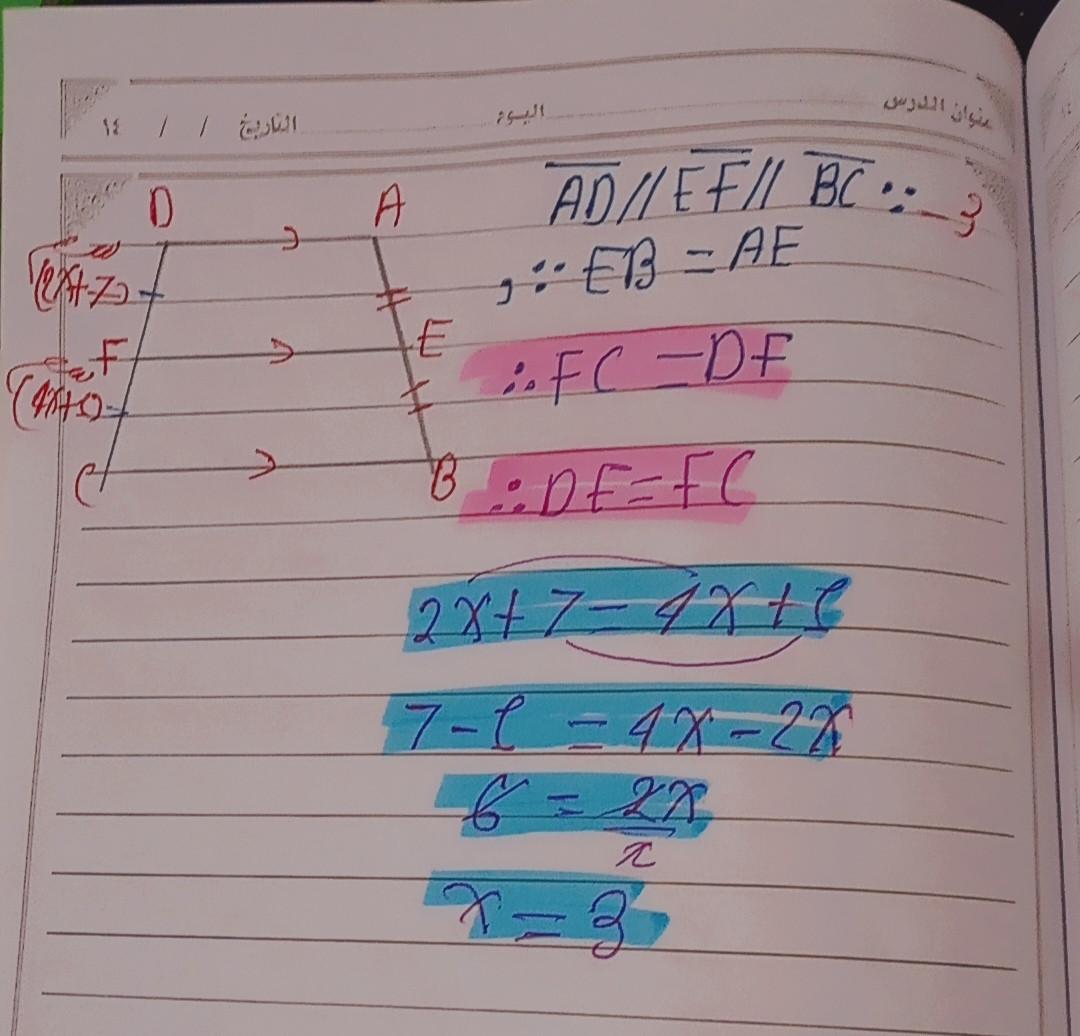 عنوان الدرس اليوم التاريخ / / ١٤
-3 ∵ AD // EF // BC
, ∵ EB = AE
∴ FC = DF
∴ DF = FC
2x + 7 = 4x + 1
7 - 1 = 4x - 2x
6 = 2x
x = 3
D A
(2x+7)
F E
(4x+1)
C B